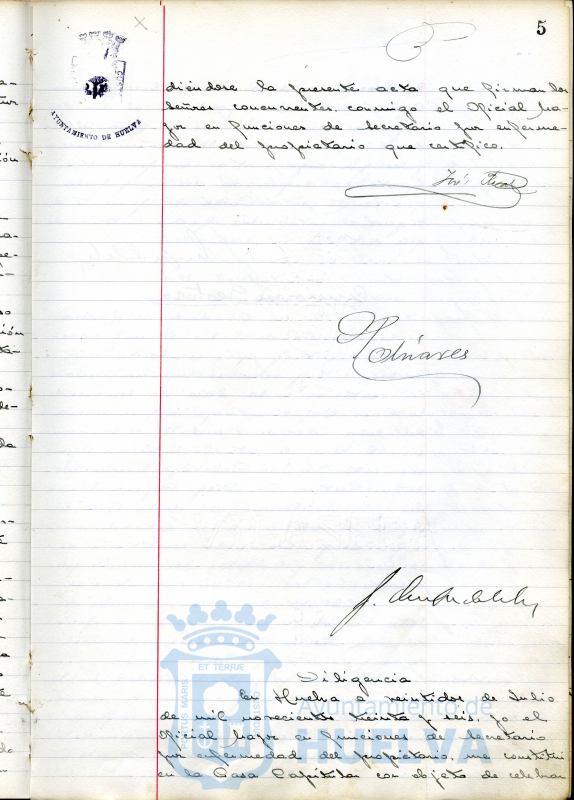 5
AYUNTAMIENTO DE HUELVA
diéndose la presente acta que firman los
señores concurrentes, conmigo el Oficial Ma-
yor en funciones de Secretario por enferme-
dad del propietario que certifico.
José
Diligencia
En Huelva a veintidos de Julio
de mil novecientos treinta y seis, yo el
Oficial Mayor en funciones de Secretario
por enfermedad del propietario, me constituí
en la Casa Capitular con objeto de celebrar
ET TERRÆ
PORTUS MARIS
Ayuntamiento de
HUELVA